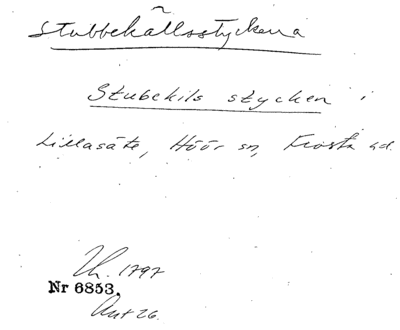 Stubbekällsstyckena
Stubekils stycken i
Lillasäte, Höör sn, Frosta hd.
Lh. 1797
Nr 6853.
Akt 26.